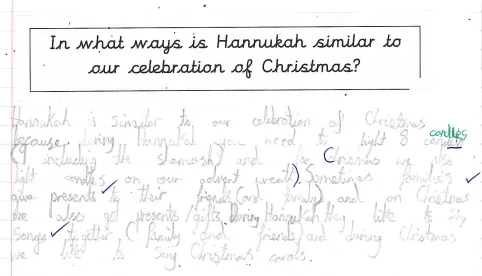 In what ways is Hannukah similar to
our celebration of Christmas?
Hannukah is similar to our celebration of Christmas
candles
because during Hannukah you need to light 8
(9 including the shamash) and for Christmas we also
light candles on our advent wreath). Sometimes families
give presents to their friends (and family) and on Christmas
we also get presents/gifts. During Hanukah they like to sing
songs together (family and friends) and during Christmas
we like to sing Christmas carols.